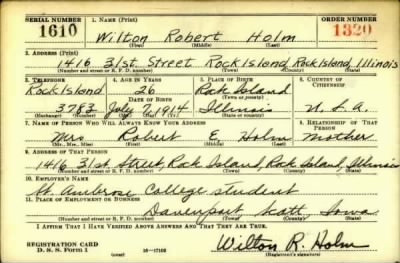 SERIAL NUMBER
1. NAME (Print)
ORDER NUMBER
1610
Wilton Robert Holm
1320
(First) (Middle) (Last)
2. ADDRESS (Print)
1416 31st. Street Rock Island, Rock Island, Illinois
(Number and street or R. F. D. number) (Town) (County) (State)
3. TELEPHONE
4. AGE IN YEARS
5. PLACE OF BIRTH
6. COUNTRY OF CITIZENSHIP
Rock Island
26
Rock Island
DATE OF BIRTH
(Town or county)
3783
July 7, 1914
Illinois
U.S.A.
(Mo.) (Day) (Yr.)
(State or country)
7. NAME OF PERSON WHO WILL ALWAYS KNOW YOUR ADDRESS
8. RELATIONSHIP OF THAT PERSON
Mrs Robert E. Holm
mother
(Mr., Mrs., Miss) (First) (Middle) (Last)
9. ADDRESS OF THAT PERSON
1416 31st. Street, Rock Island, Rock Island, Illinois
(Number and street or R. F. D. number) (Town) (County) (State)
10. EMPLOYER'S NAME
St. Ambrose College student
11. PLACE OF EMPLOYMENT OR BUSINESS
Davenport Scott, Iowa
(Number and street or R. F. D. number) (Town) (County) (State)
I AFFIRM THAT I HAVE VERIFIED ABOVE ANSWERS AND THAT THEY ARE TRUE.
REGISTRATION CARD
D. S. S. Form 1
(over)
16-17105
Wilton R. Holm
(Registrant's signature)